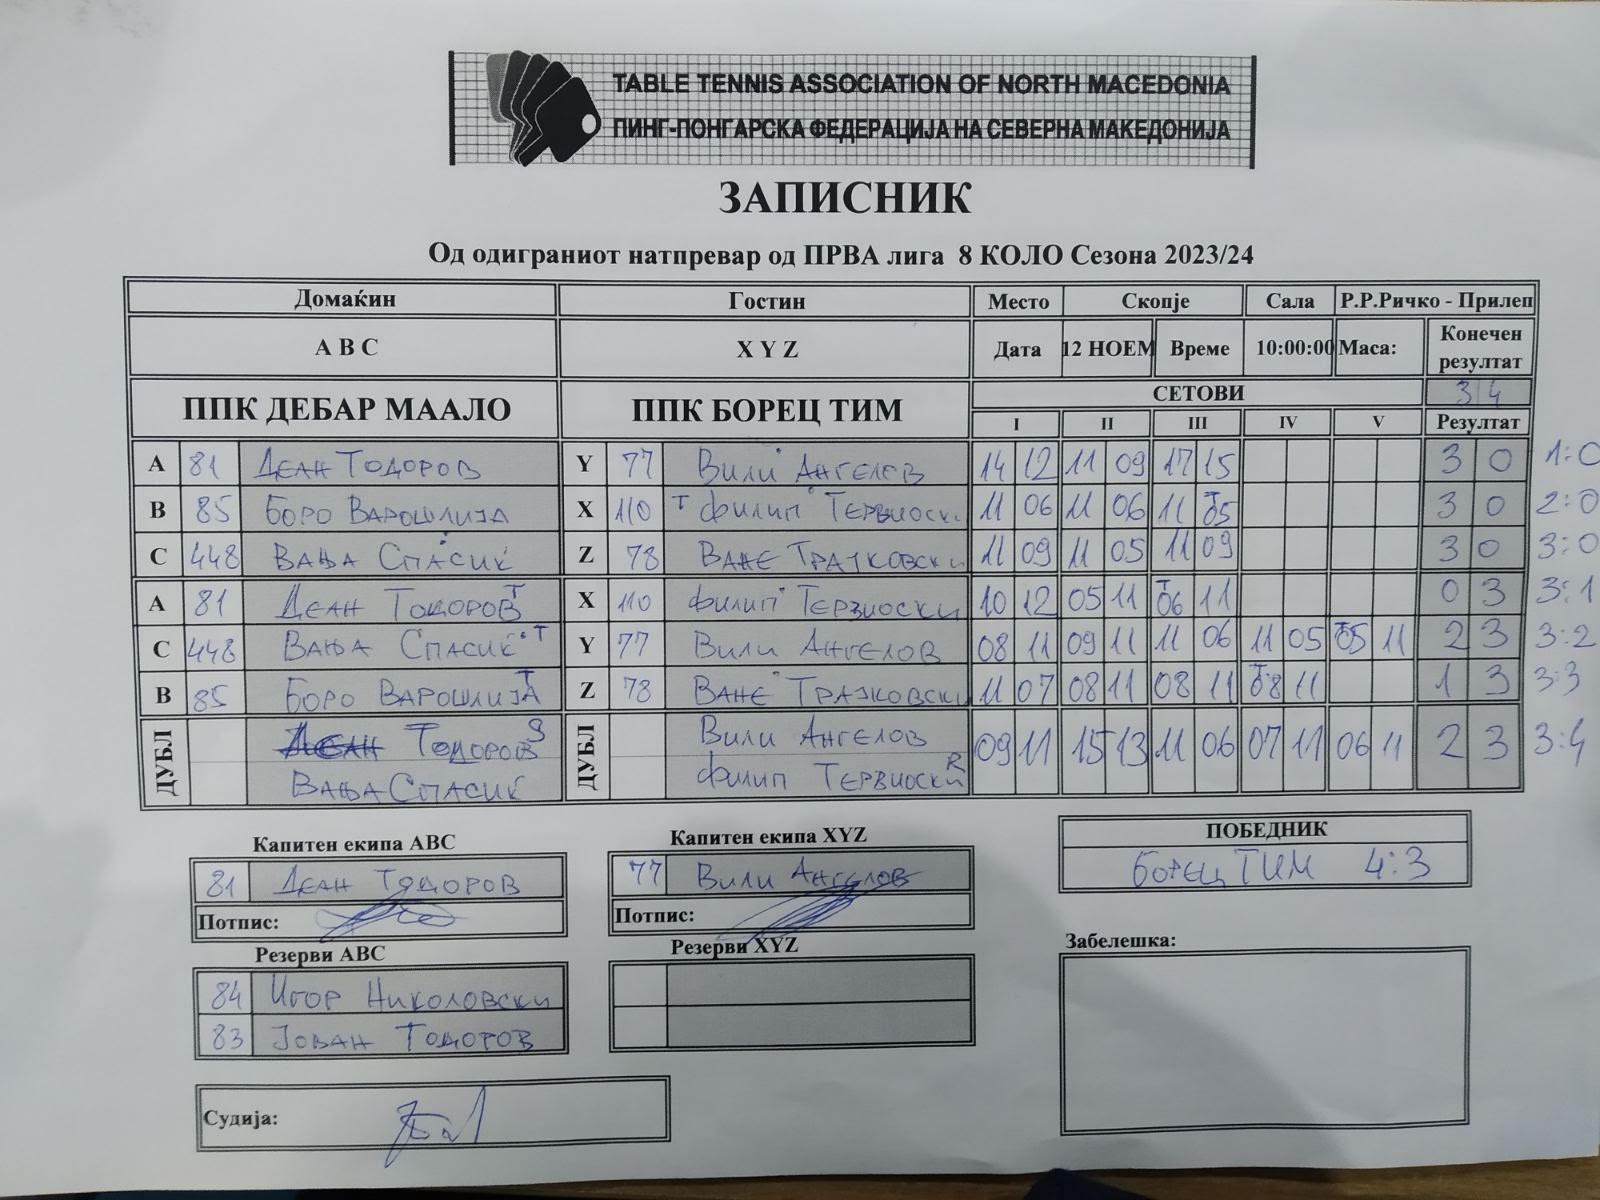 TABLE TENNIS ASSOCIATION OF NORTH MACEDONIA
ПИНГ-ПОНГАРСКА ФЕДЕРАЦИЈА НА СЕВЕРНА МАКЕДОНИЈА
ЗАПИСНИК
Од одиграниот натпревар од ПРВА лига 8 КОЛО Сезона 2023/24
Домаќин Гостин Место Скопје Сала Р.Р.Ричко - Прилеп
A B C X Y Z Дата 12 НОЕМ Време 10:00:00 Маса: Конечен резултат
ППК ДЕБАР МААЛО ППК БОРЕЦ ТИМ СЕТОВИ 3 4
I II III IV V Резултат
A 81 ДЕАН ТОДОРОВ Y 77 ВИЛИ АНГЕЛОВ 14 12 11 09 17 15 3 0 1:0
B 85 БОРО ВАРОШЛИЈА X 110 Т ФИЛИП ТЕРЗИОСКИ 11 06 11 06 11 Т05 3 0 2:0
C 448 ВАЊА СПАСИЌ Z 78 ВАНЕ ТРАЈКОВСКИ 11 09 11 05 11 09 3 0 3:0
A 81 ДЕАН ТОДОРОВ Т X 110 ФИЛИП ТЕРЗИОСКИ 10 12 05 11 Т06 11 0 3 3:1
C 448 ВАЊА СПАСИЌ Т Y 77 ВИЛИ АНГЕЛОВ 08 11 09 11 11 06 11 05 Т05 11 2 3 3:2
B 85 БОРО ВАРОШЛИЈА Т Z 78 ВАНЕ ТРАЈКОВСКИ 11 07 08 11 08 11 Т08 11 1 3 3:3
ДУБЛ ТОДОРОВ S ДУБЛ ВИЛИ АНГЕЛОВ 09 11 15 13 11 06 07 11 06 11 2 3 3:4
ВАЊА СПАСИЌ ФИЛИП ТЕРЗИОСКИ R
Капитен екипа ABC Капитен екипа XYZ ПОБЕДНИК
81 ДЕАН ТОДОРОВ 77 ВИЛИ АНГЕЛОВ БОРЕЦ ТИМ 4:3
Потпис: Потпис:
Резерви ABC Резерви XYZ Забелешка:
84 ИГОР НИКОЛОВСКИ
83 ЈОВАН ТОДОРОВ
Судија: